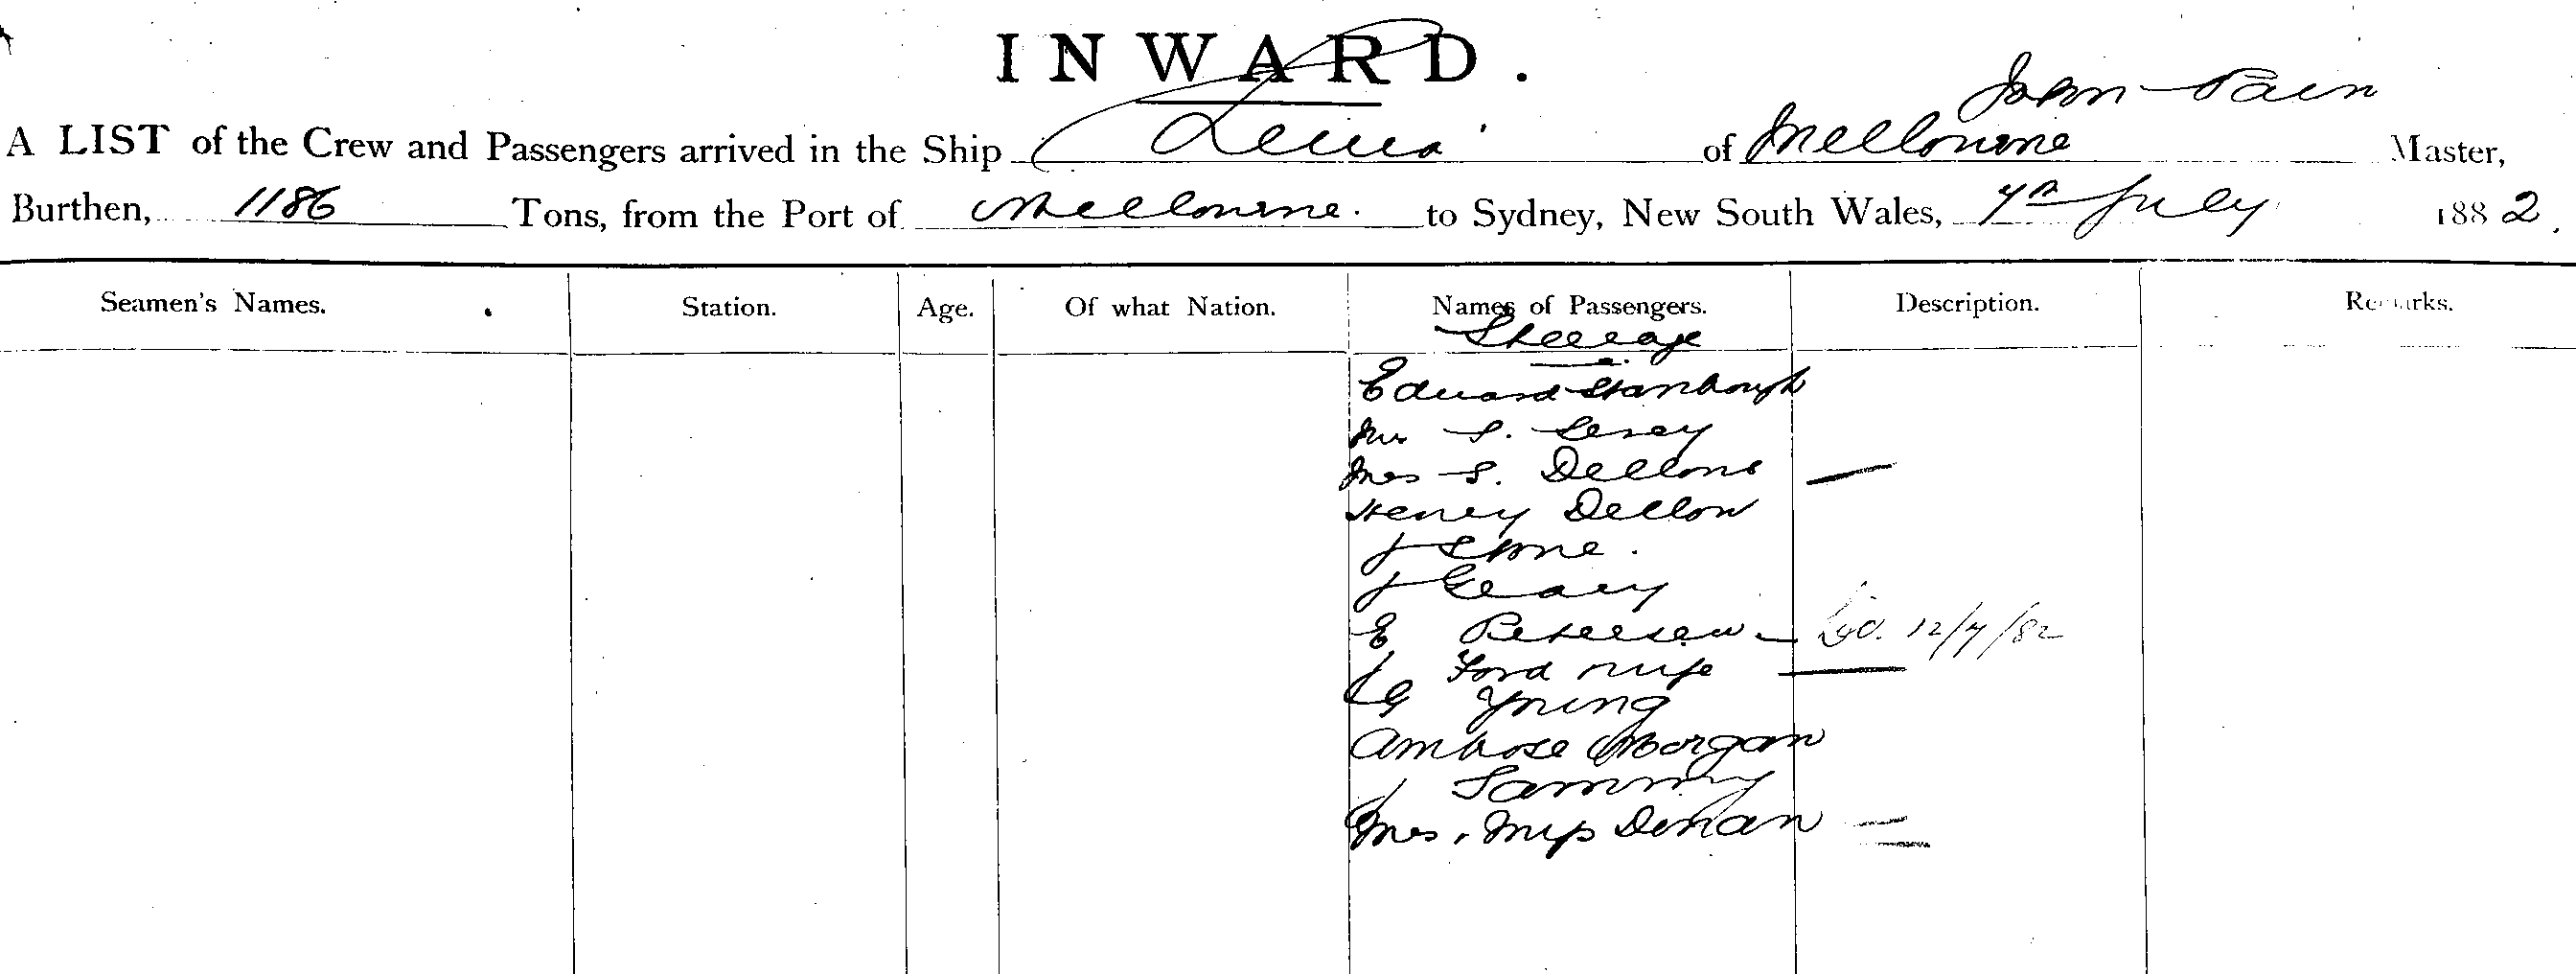 INWARD.
John Pain
A LIST of the Crew and Passengers arrived in the Ship of Melbourne Master,
Burthen, 1186 Tons, from the Port of Melbourne. to Sydney, New South Wales, 7th July 1882.
Seamen's Names. Station. Age. Of what Nation. Names of Passengers. Description. Remarks.
Steerage
Edward Stanbough
S.
Mrs S. Dellons
Henry Dellow
J Stone.
J Geary
E Petersen 12/7/82
J Ford
G Young
Ambose Morgan
J Sammy
Mrs, Miss